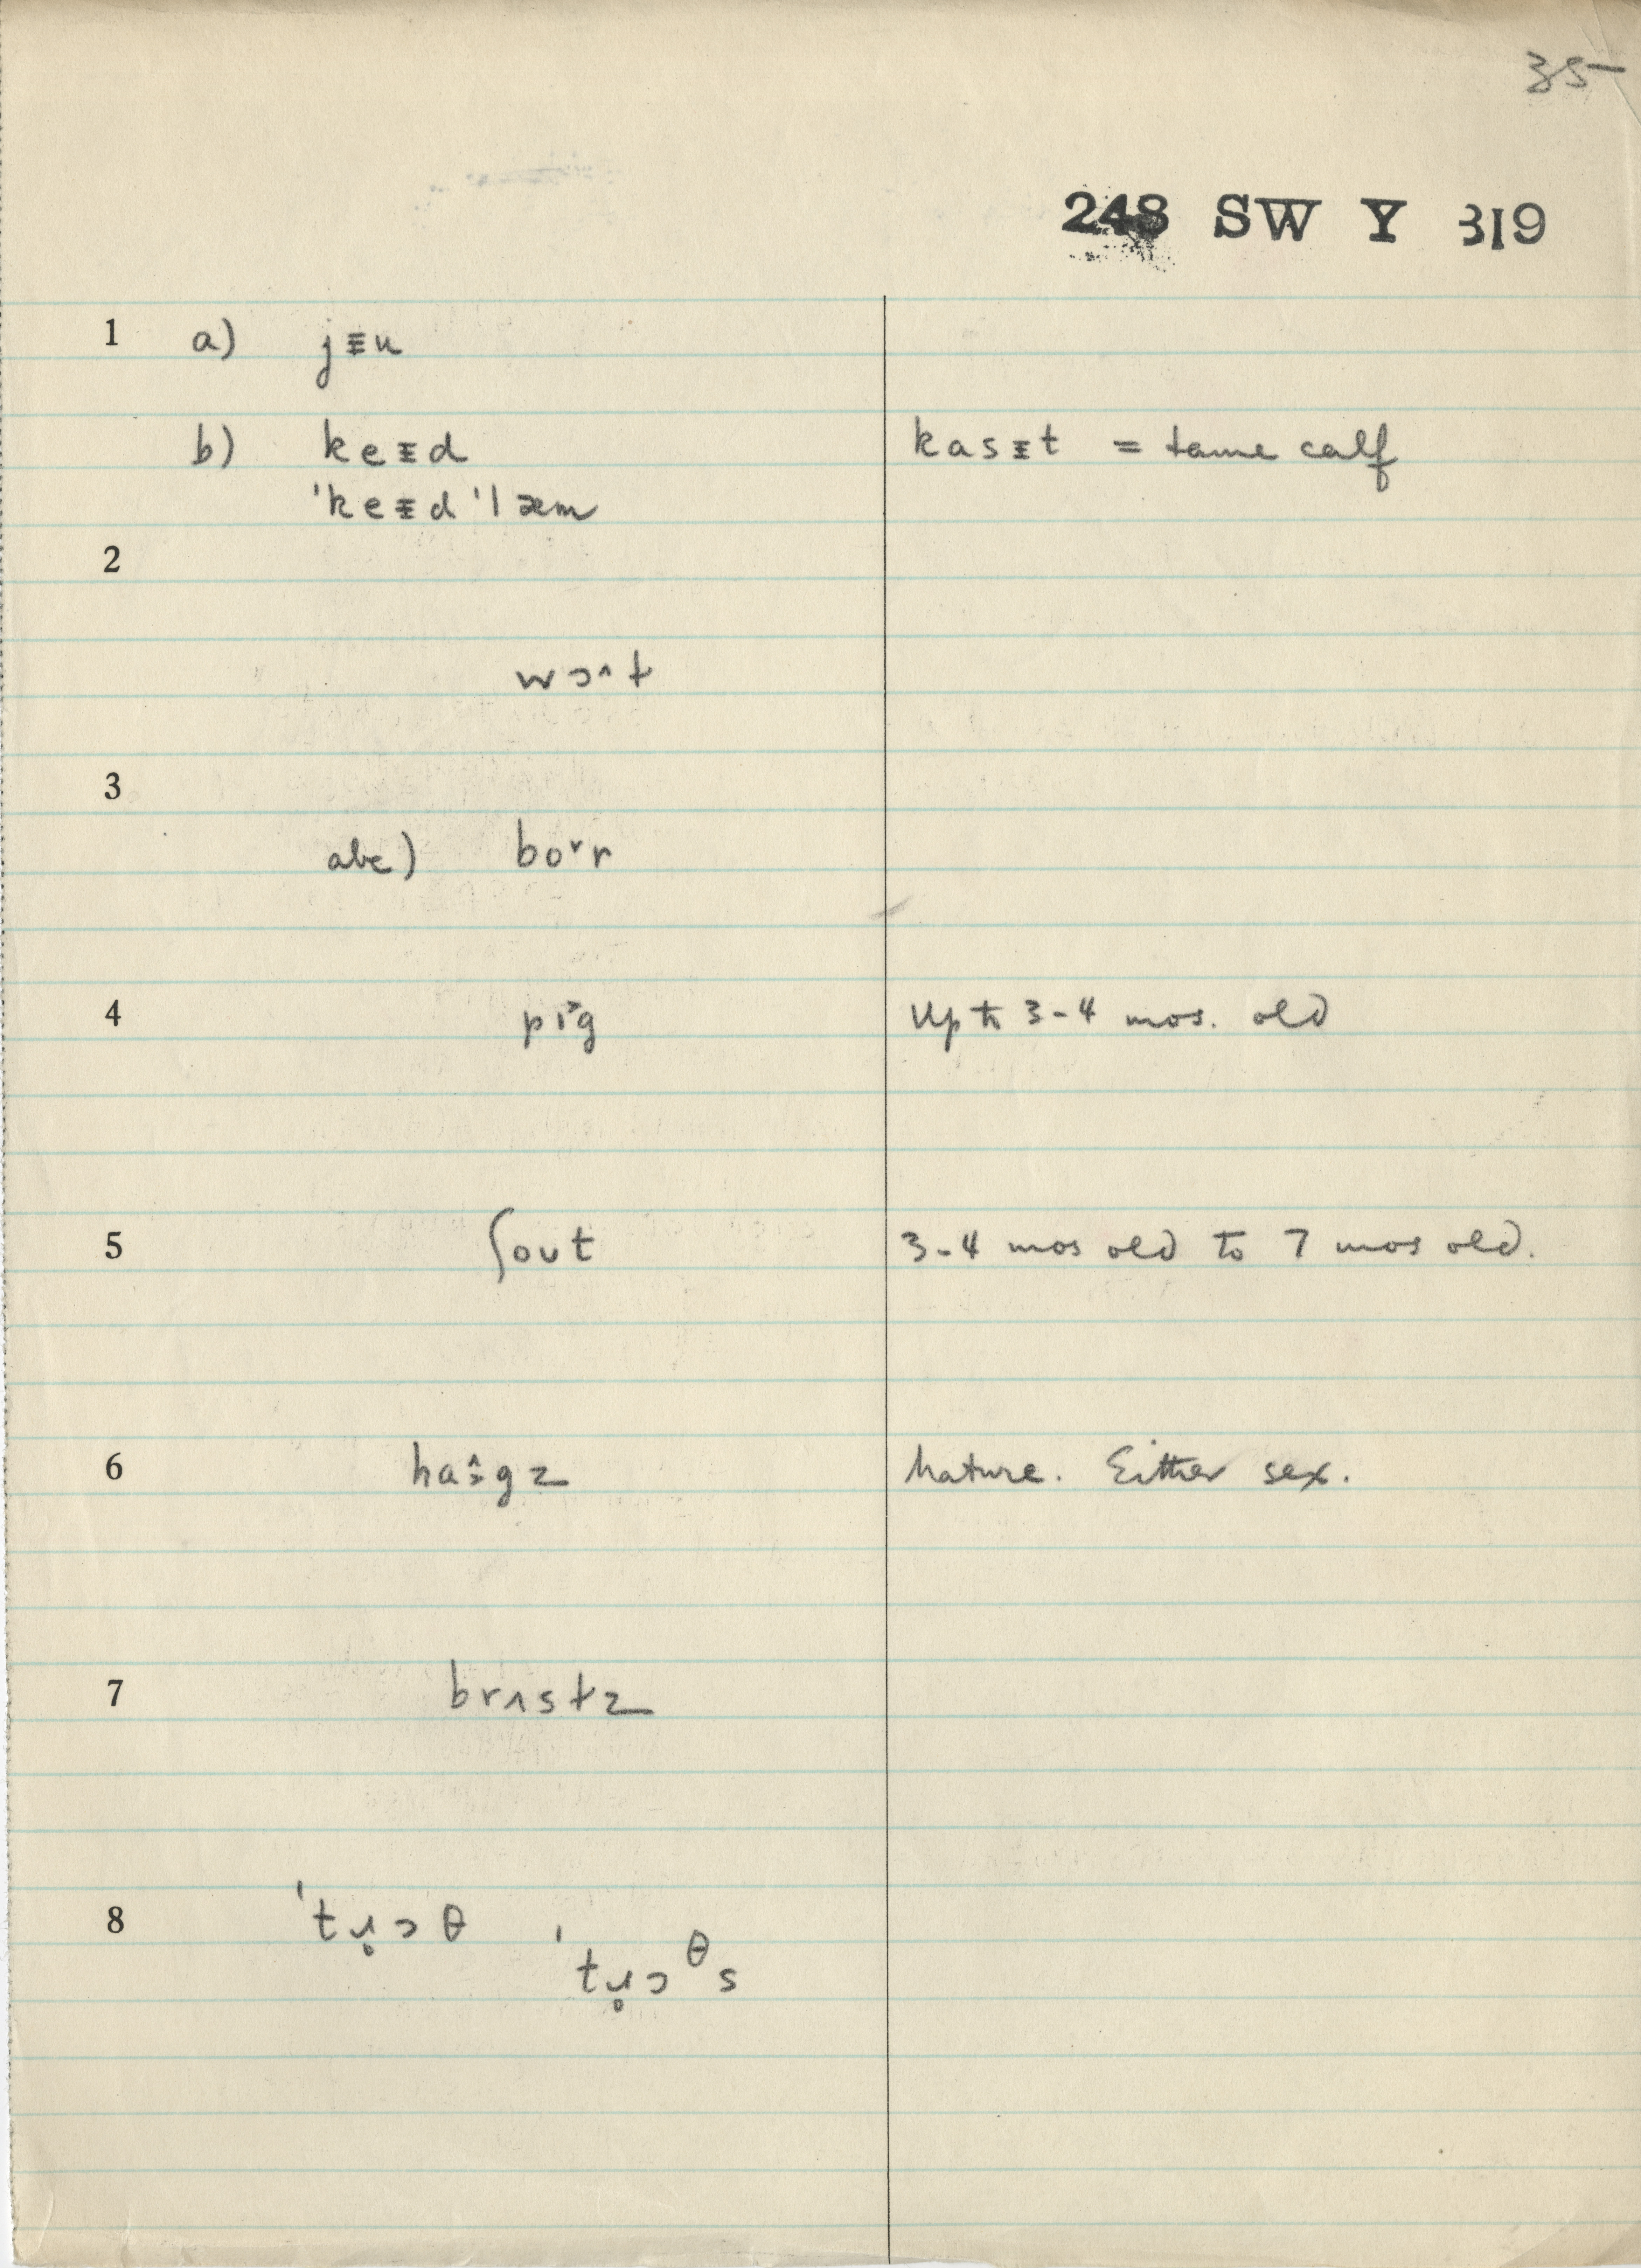 35
248 SW Y 319
1 a) jᵻu
b) keᵻd kasᵻt = tame calf
'keᵻd 'læm
2
wɔ^t
3
abc) boˇr
4 pɪ˃g Up to 3-4 mos. old
5 ʃoʊt 3-4 mos old to 7 mos old.
6 Mature. Either sex.
7 brʌstz
8 'tɹ̥ɔθ
'tɹ̥ɔᶿs